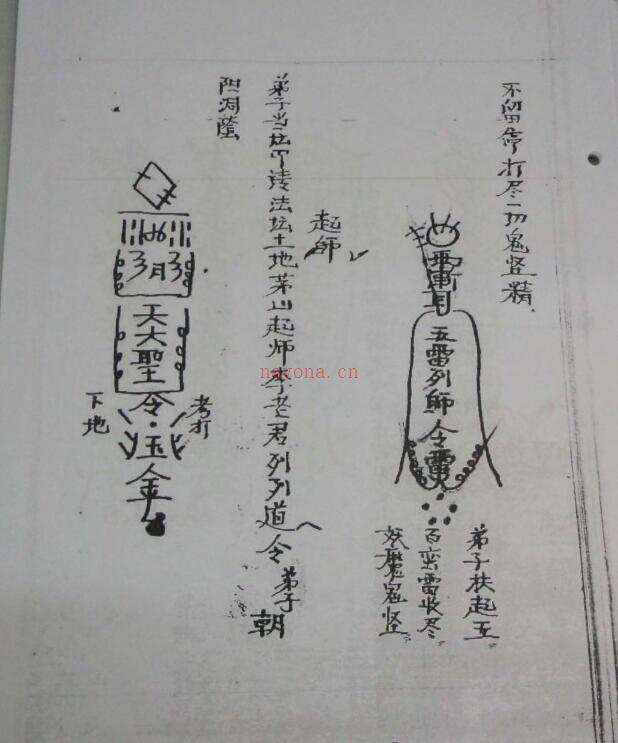 不留停打尽一切鬼竖精
雷
五雷列師令
弟子扶起五
百蛮雷收尽
妖魔鬼竖
起師
弟子当坛叩请法坛土地茅山起師李老君列列道令
弟子
朝
nayona.cn
月
天大聖
令
考打
下地
玉
金